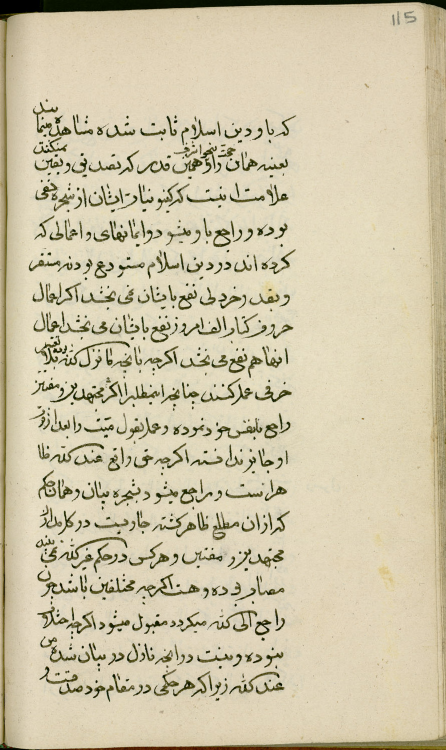 115
که باو دین اسلام ثابت شده مشاهده مینمایند
بعینه همان حجت را و همین قدر که تصدیق و یقین نمیکنند
علامت اینست که کینونیات ایشان از شجره نفی
بوده و راجع باو میشود و ایمانهای و اعمالی که
کرده‌اند در دین اسلام مستودع بوده نه مستقر
و بقدر خردلی نفع بایشان نمی بخشد اگر اعمال
حروف کتاب الف امروز نفع بایشان می بخشد اعمال
اینها هم نفع می بخشد اگرچه بآنچه ما نزل الله بلا تغییر
حرفی عمل کنند چنانچه این مطلب را اکثر مجتهدین و مفتین
راجع بنفس خود نموده و عمل بقول میت را بعد از فوت
او جایز ندانسته اگرچه فی الواقع عند الله ظاهر
است و راجع میشود بشجره بیان و همان حکم
که از ان مطلع ظاهر گشته جاریست در کل مدارک
مجتهدین و مفتین و هر کس در حکم غیر الله نمی بیند
مصاب بوده و هست اگرچه مختلفین باشد چون
راجع الی الله میگردد مقبول میشود اگرچه اختلاف
نبوده و نیست در آنچه نازل در بیان شده من
عند الله زیرا که هر حکمی در مقام خود صدقست و